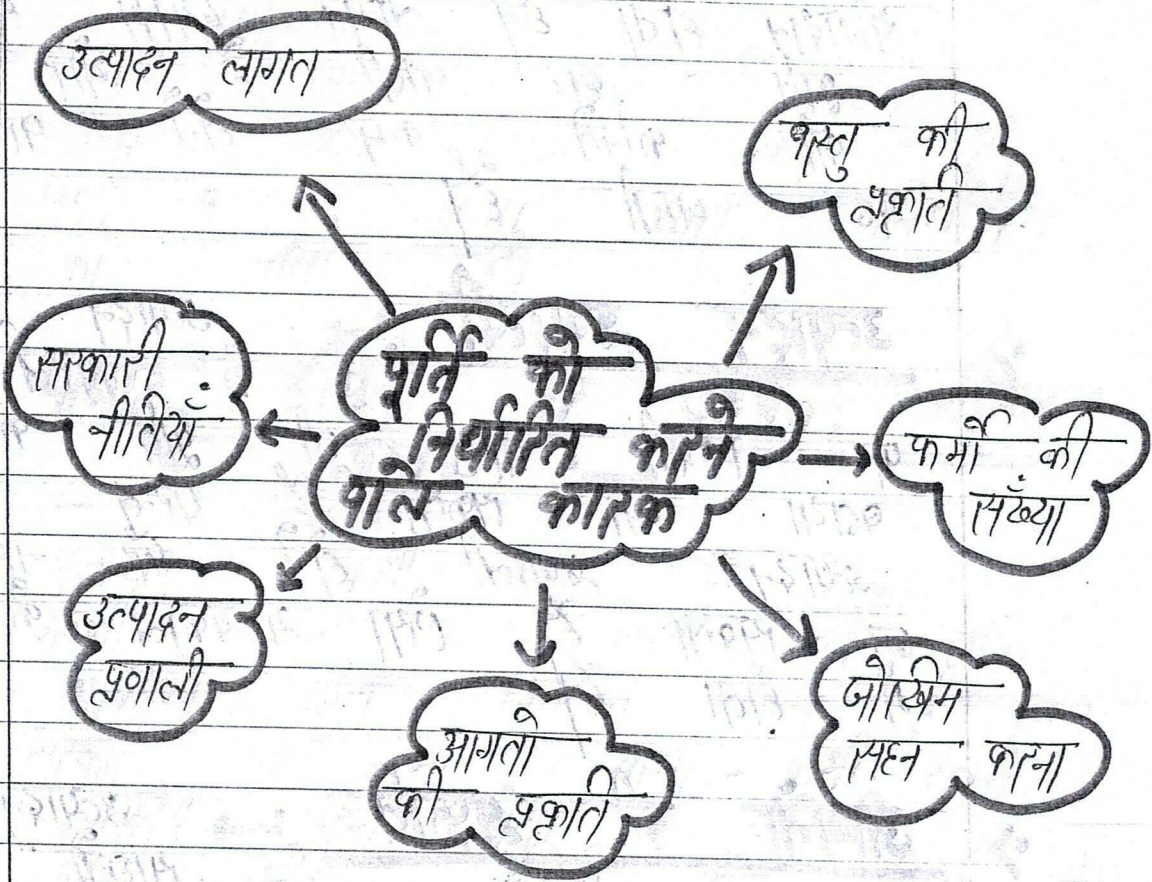 उत्पादन लागत
वस्तु की
प्रकृति
पूर्ति को
निर्धारित करने
वाले कारक
सरकारी
नीतियाँ
फर्मों की
सँख्या
उत्पादन
प्रणाली
आगतो
की प्रकृति
जोखिम
सहन करना